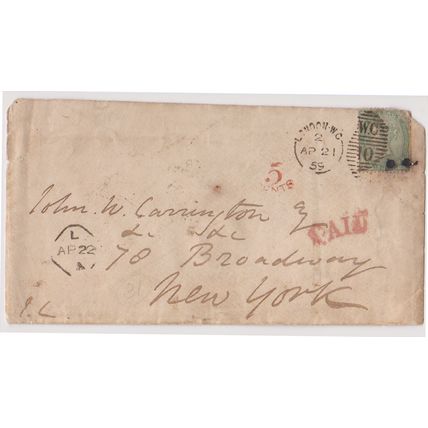 LONDON·W.C
2
AP 21
59
W.C
10
5
CENTS
PAID
John W. Carrington Eq
&c &c
78 Broadway
New York
L
AP 22
A